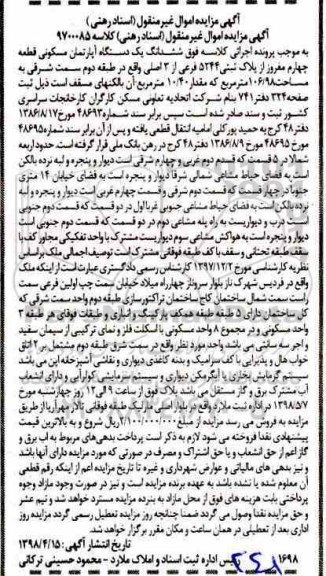 آگهی مزایده اموال غیرمنقول (اسناد رهنی)
آگهی مزایده اموال غیرمنقول (اسناد رهنی) کلاسه ۹۷۰۰۰۸۵
به موجب پرونده اجرائی کلاسه فوق ششدانگ یک دستگاه آپارتمان مسکونی قطعه
چهارم مفروز از پلاک ثبتی ۵۲۴۴ فرعی از ۳ اصلی واقع در طبقه دوم سمت شرقی به
مساحت ۱۰۶/۹۸ مترمربع که مقدار ۱۰/۴۰ مترمربع آن بالکنهای مسقف است ذیل ثبت
صفحه ۳۳۴ دفتر ۷۴۱ بنام شرکت اتحادیه تعاونی مسکن کارگران کارخانجات سراسری
کشور ثبت و سند صادر شده است سپس برابر سند شماره ۴۸۶۹۳ مورخ ۱۳۸۶/۸/۱۷
دفتر ۴۸ کرج به حمید پورکلی امامیه انتقال قطعی یافته و پس از آن برابر سند شماره ۴۸۶۹۵
مورخ ۴۸۶۹۵ مورخ ۱۳۸۶/۸/۹ دفتر ۴۸ کرج در رهن بانک ملی قرار گرفته است. حدود اربعه
شمالا در ۵ قسمت که قسمت دوم غربی و چهارم شرقی است دیوار و پنجره و لبه نرده بالکن
است به فضای حیاط مشاعی شمالی شرقا دیوار و پنجره است به فضای خیابان ۱۴ متری
جنوبا در چهار قسمت که قسمت دوم شرقی و قسمت چهارم غربی است دیوار و پنجره و لبه
نرده بالکن است به فضای حیاط مشاعی جنوبی غربا اول در دو قسمت که قسمت دوم جنوبی
است درب و دیواریست به راه پله مشاعی دوم در دو قسمت که قسمت دوم جنوبی است
دیوار و پنجره است به هواکش مشاعی سوم دیواریست مشترک با واحد تفکیکی مجاور کف با
سقف طبقه تحتانی و سقف با کف طبقه فوقانی مشترک است توصیف اجمالی ملک براساس
نظریه کارشناسی مورخ ۱۳۹۷/۱۲/۲ کارشناس رسمی دادگستری عبارت است از اینکه ملک
واقع در فردیس شهرک ناز بلوار سرونار چهارراه میلاد خیابان سمت چپ اولین فرعی سمت
راست سمت شمال ساختمان کاج ساختمان تراکتورسازی طبقه دوم واحد سمت شرقی که
کل ساختمان دارای ۵ طبقه طبقه همکف پارکینگ و انباری و طبقات فوقانی هر طبقه ۲
واحد مسکونی و در مجموع ۸ واحد مسکونی با اسکلت فلز و نمای ترکیبی از سیمان سفید
و آجر سه سانتی می باشد واحد مورد نظر واقع در سمت شرق طبقه دوم مشتمل بر ۲ اتاق
خواب هال و پذیرایی با کف سرامیک و بدنه کاغذی دیواری و نقاشی آشپزخانه اپن می باشد
سیستم گرمایش بخاری با آبگرمکن دیواری و سیستم سرمایشی کولرآبی و دارای انشعاب
آب مشترک برق و گاز مستقل می باشد پلاک فوق از ساعت ۹ الی ۱۲ روز چهارشنبه مورخ
۱۳۹۸/۵/۷ در اداره ثبت ملارد واقع در بلوار اصلی مارلیک طبقه فوقانی تالار مهرآریا از طریق
مزایده به فروش می رسد مزایده از مبلغ ۲/۱۰۰/۰۰۰/۰۰۰ ریال شروع و به بالاترین قیمت
پیشنهادی نقدا فروخته می شود لازم به ذکر است پرداخت بدهی های مربوط به آب برق و
گاز اعم از حق انشعاب و یا حق اشتراک و مصرف در صورتی که مورد مزایده دارای آنها باشد
و نیز بدهی های مالیاتی و عوارض شهرداری و غیره تا تاریخ مزایده اعم از اینکه رقم قطعی
آن معلوم شده یا نشده باشد به عهده برنده مزایده است و نیز در صورت وجود مازاد وجوه
پرداختی بابت هزینه های فوق از محل مازاد به برنده مزایده مسترد خواهد شد و نیم عشر
و حق مزایده نقدا وصول می گردد ضمنا چنانچه روز مزایده تعطیل رسمی گردد مزایده روز
اداری بعد از تعطیلی در همان ساعت و مکان مقرر برگزار خواهد شد.
تاریخ انتشار آگهی: ۱۳۹۸/۴/۱۵
۱۶۹۸ اداره ثبت اسناد و املاک ملارد - محمود حسینی ترکانی